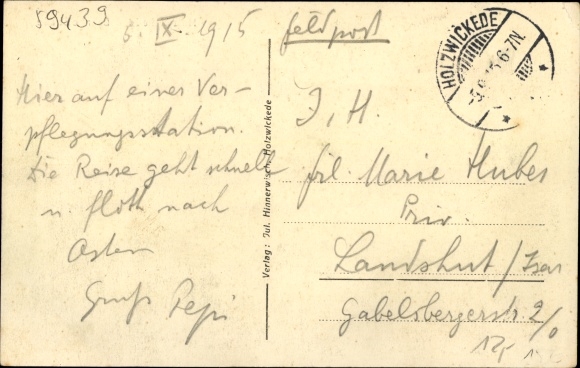 59439
5. IX. 1915
Hier auf einer Ver-
pflegungsstation.
Die Reise geht schnell
u. flott nach
Osten
Gruß Pepi
Verlag: Jul. Hinnerwisch, Holzwickede
Feldpost
HOLZWICKEDE
5.9.15.6-7N.
I. H.
Frl. Marie Huber
Priv.
Landshut / Isar
Gabelsbergerstr. 2/0